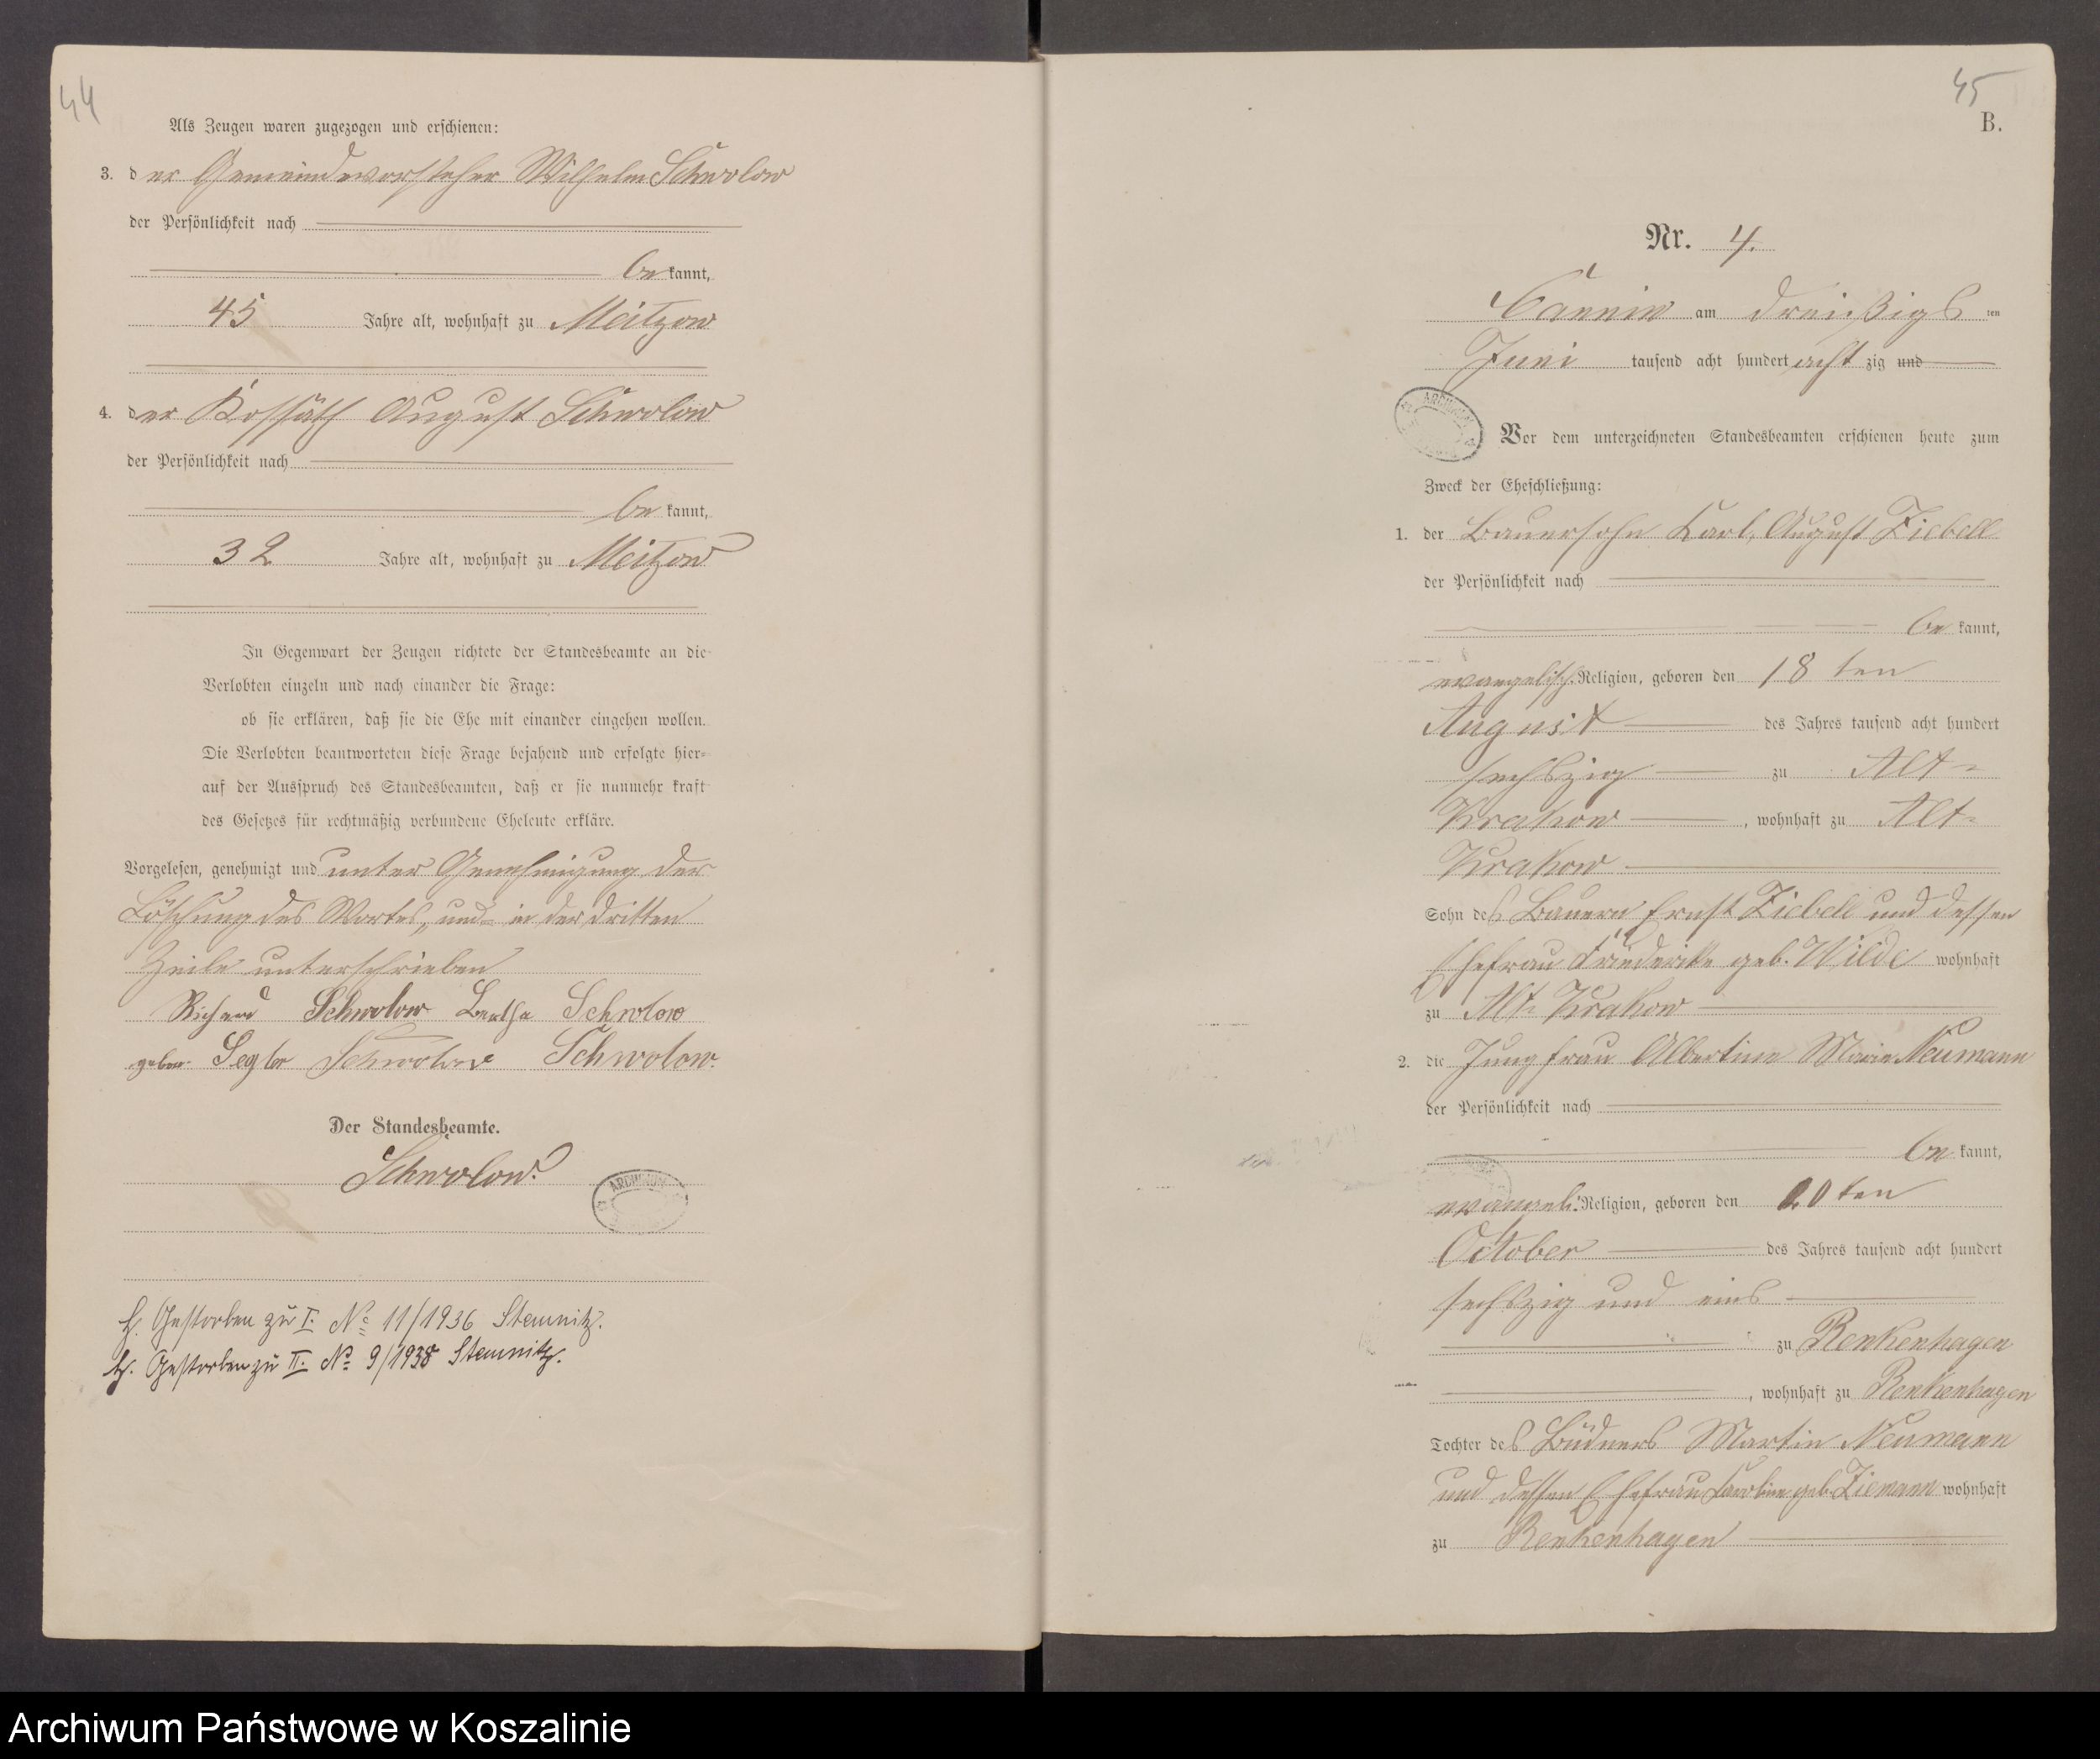 44
Als Zeugen waren zugezogen und erschienen:
3. der Gemeindevorsteher Wilhelm Schwolow
der Persönlichkeit nach
bekannt,
45 Jahre alt, wohnhaft zu Meitzow
4. der Kossäth August Schwolow
der Persönlichkeit nach
bekannt,
32 Jahre alt, wohnhaft zu Meitzow
In Gegenwart der Zeugen richtete der Standesbeamte an die
Verlobten einzeln und nach einander die Frage:
ob sie erklären, daß sie die Ehe mit einander eingehen wollen.
Die Verlobten beantworteten diese Frage bejahend und erfolgte hier-
auf der Ausspruch des Standesbeamten, daß er sie nunmehr kraft
des Gesetzes für rechtmäßig verbundene Eheleute erkläre.
Vorgelesen, genehmigt und unter Genehmigung der
Löschung des Wortes „und“ in der dritten
Zeile unterschrieben
Richard Schwolow Bertha Schwolow
gebor. Segler Schwolow Schwolow.
Der Standesbeamte.
Schwolow.
ARCHIWUM
H. Gestorben zu I. No 11/1936 Stemnitz.
H. Gestorben zu II. No 9/1938 Stemnitz.
45
B.
Nr. 4.
Cannin am dreißigsten
Juni tausend acht hundert achtzig und
ARCHIWUM
Vor dem unterzeichneten Standesbeamten erschienen heute zum
Zweck der Eheschließung:
1. der Bauersohn Karl, August Ziebell
der Persönlichkeit nach
bekannt,
evangelisch. Religion, geboren den 18 ten
August des Jahres tausend acht hundert
sechszig zu Alt-
Krakow, wohnhaft zu Alt-
Krakow
Sohn des Bauern Ernst Ziebell und dessen
Ehefrau Friederike geb. Wilde wohnhaft
zu Alt Krakow
2. die Jungfrau Albertine Marie Neumann
der Persönlichkeit nach
bekannt,
evangel. Religion, geboren den ten
October des Jahres tausend acht hundert
sechszig und eins
zu Renkenhagen
, wohnhaft zu Renkenhagen
Tochter des Büdners Martin Neumann
und dessen Ehefrau Karoline geb. Ziemann wohnhaft
zu Renkenhagen
Archiwum Państwowe w Koszalinie